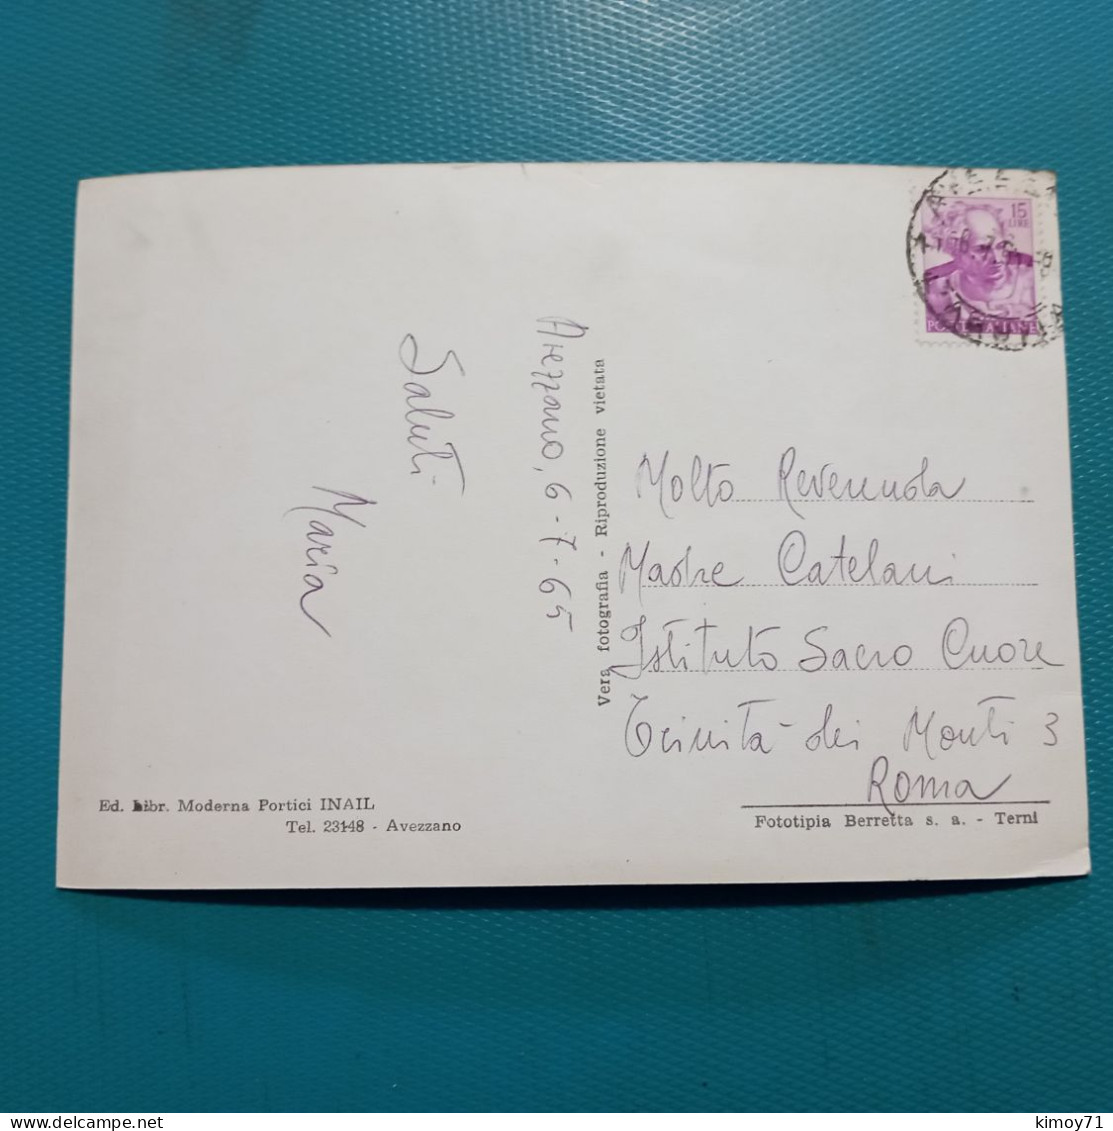 Avezzano, 6-7-65
Saluti
Maria
Vera fotografia - Riproduzione vietata
15
LIRE
Molto Reverenda
Madre Catelani
Istituto Sacro Cuore
Trinità dei Monti 3
Roma
Ed. Libr. Moderna Portici INAIL
Tel. 23148 - Avezzano
Fototipia Berretta s. a. - Terni
kimoy71